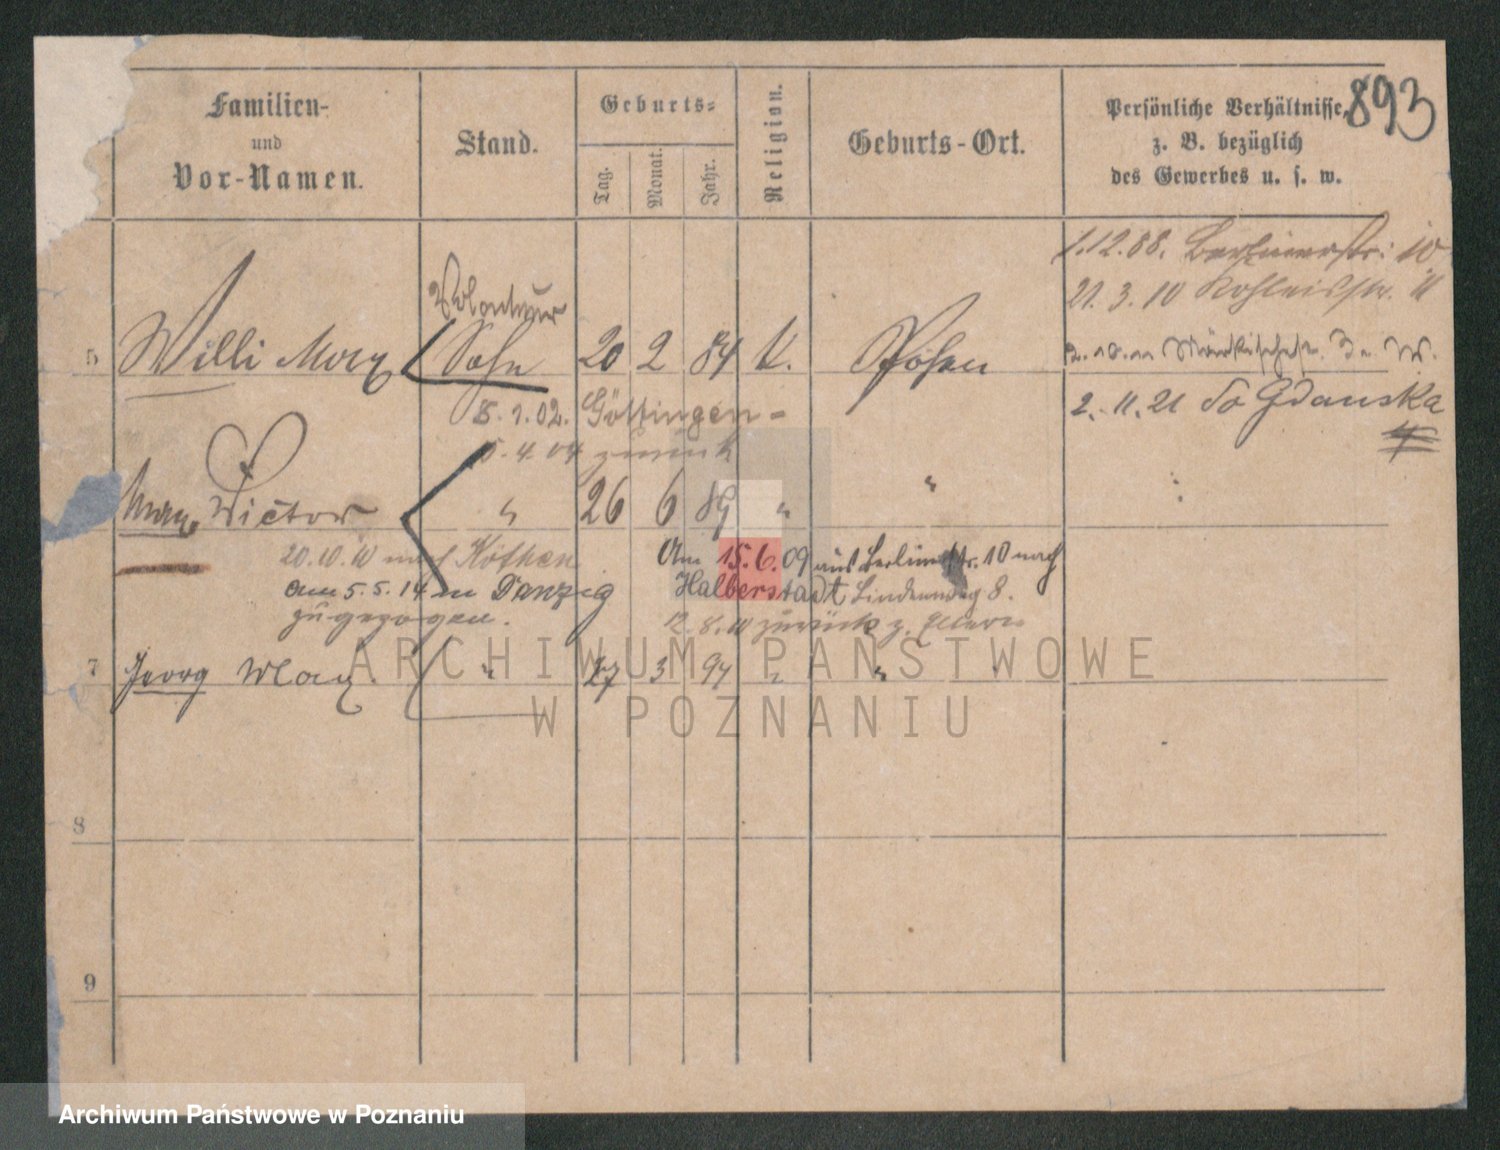 893
Familien-
und
Vor-Namen.
Stand.
Geburts-
Tag.
Monat.
Jahr.
Religion.
Geburts-Ort.
Persönliche Verhältnisse,
z. B. bezüglich
des Gewerbes u. s. w.
1.12.08. Berlinerstr: 10
21. 3. 10
Volonteur
5 Willi Max Sohn 20 2 84 K. Posen
2.-11.21 do Gdańska
8.1.02. Göttingen -
5.4.04 zurück
Max Victor " 26 6 89 " "
20.10.10 nach Köthen
am 5.5.14 in Danzig
zugezogen.
Am 15.6.09 aus Berlinerstr. 10 nach
Halberstadt Lindenweg 8.
12.8.10 zurück z. Eltern
7 Georg Max. " 27 3 94 " "
8
9
ARCHIWUM PAŃSTWOWE
W POZNANIU
Archiwum Państwowe w Poznaniu